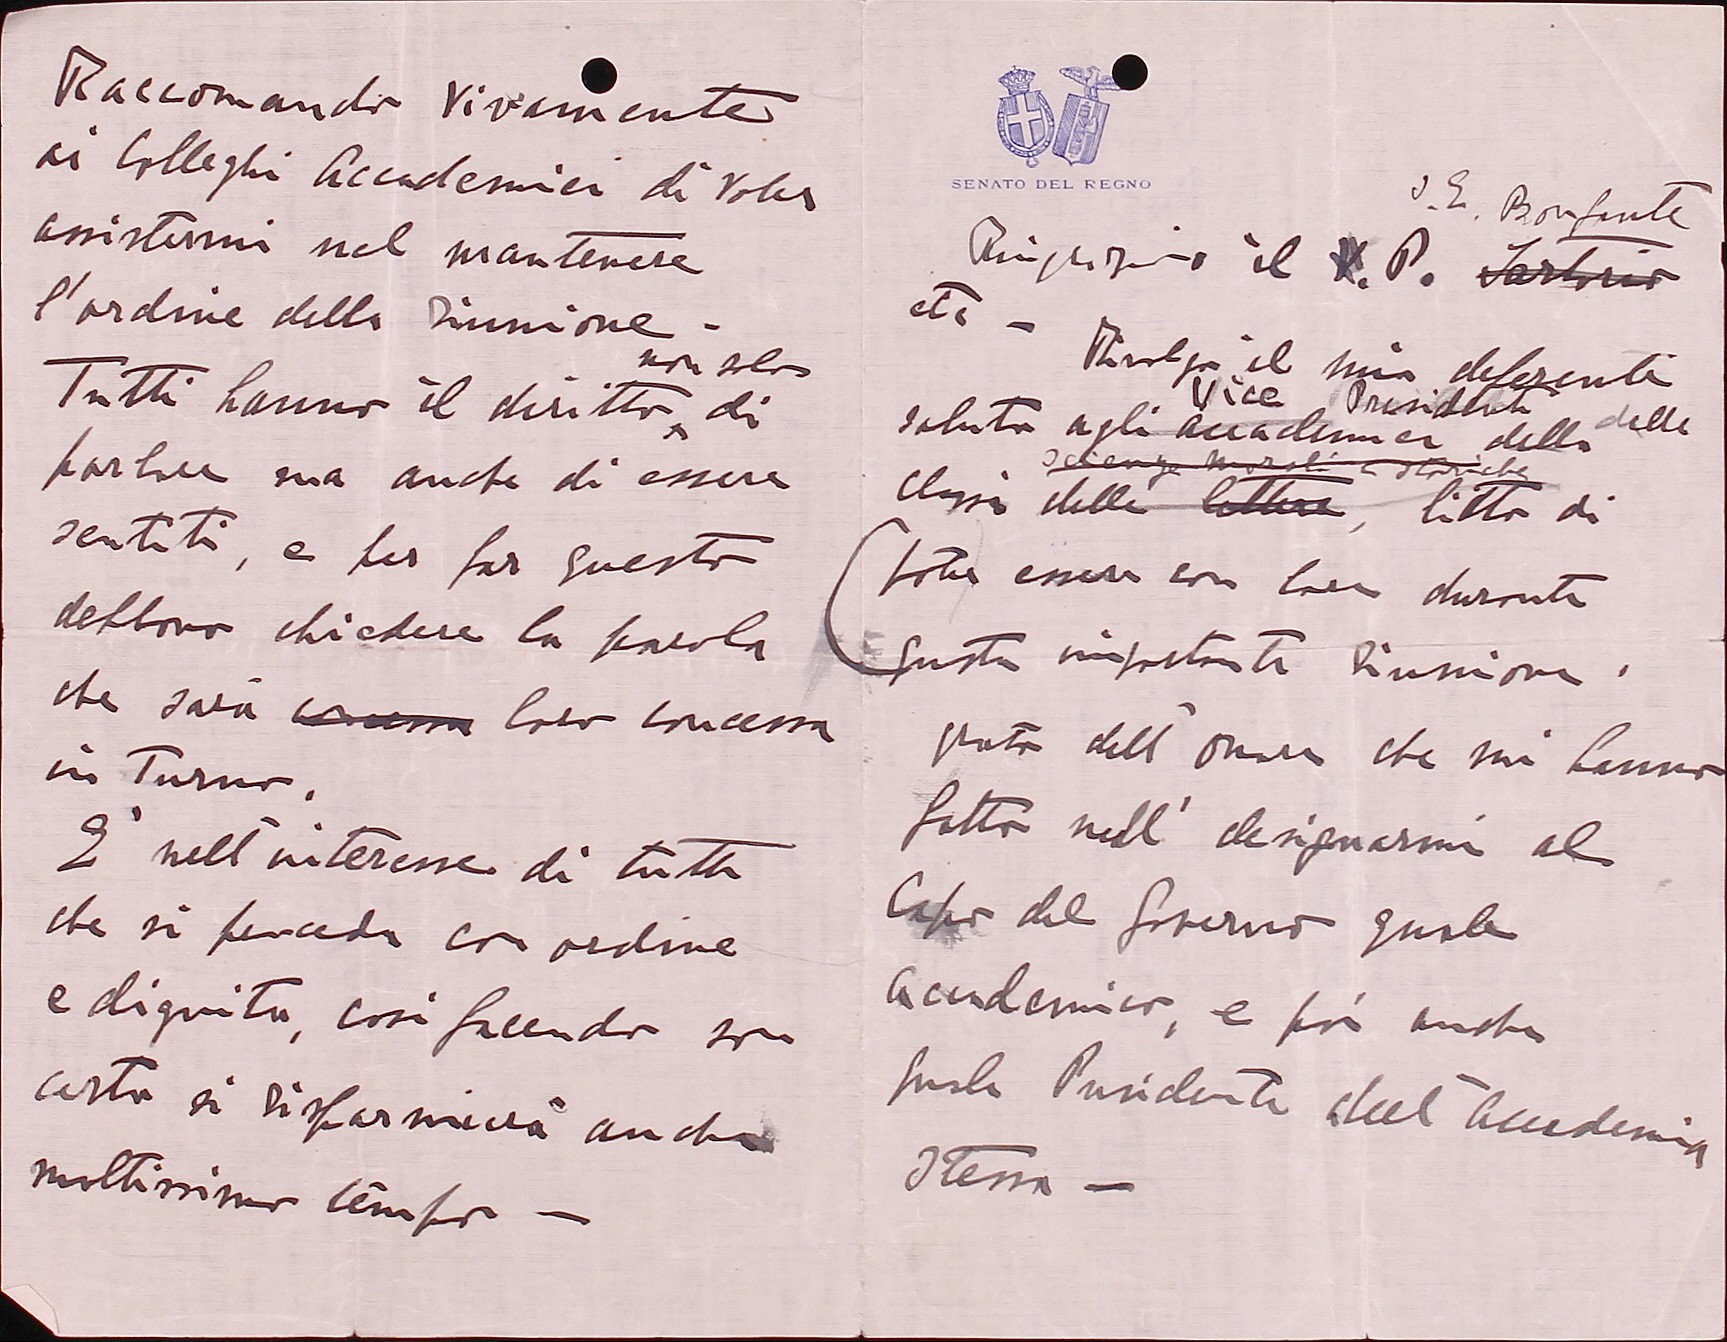 SENATO DEL REGNO
S.E. Bonfante
Ringrazio il V. P. Sartorio
etc –
Rivolgo il mio deferente
Vice Presidenti
saluto agli accademici della delle
scienze morali e storiche
classi delle lettere, lieto di
poter essere con loro durante
questa importante riunione.
grato dell'onore che mi hanno
fatto nell'designarmi al
Capo del Governo quale
accademico, e poi anche
quale Presidente dell'Accademia
stessa –
Raccomando vivamente
ai Colleghi Accademici di voler
assistermi nel mantenere
l'ordine della riunione –
non solo
Tutti hanno il diritto di
parlare ma anche di essere
sentiti, e per far questo
debbono chiedere la parola
che sarà concessa loro concessa
in turno.
E' nell'interesse di tutti
che si proceda con ordine
e dignità, così facendo son
certo si risparmierà anche
moltissimo tempo –